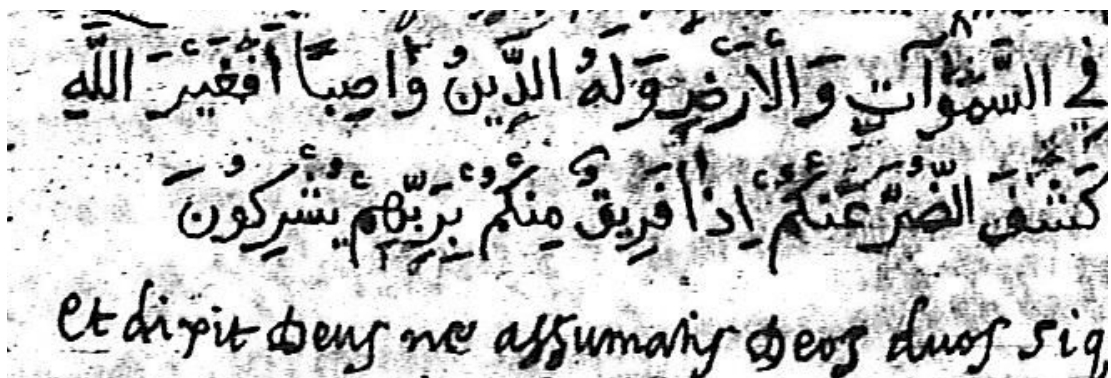 في السَّمٰوَآتِ وَالْأَرْضِ وَلَهُ الدِّينُ وَاصِبًا أَفَغَيْرَ اللَّهِ
كَشَفَ الضُّرَّ عَنْكُمْ إِذَا فَرِيقٌ مِنْكُمْ بِرَبِّهِمْ يُشْرِكُونَ
et dixit Deus ne assumatis Deos duos siq